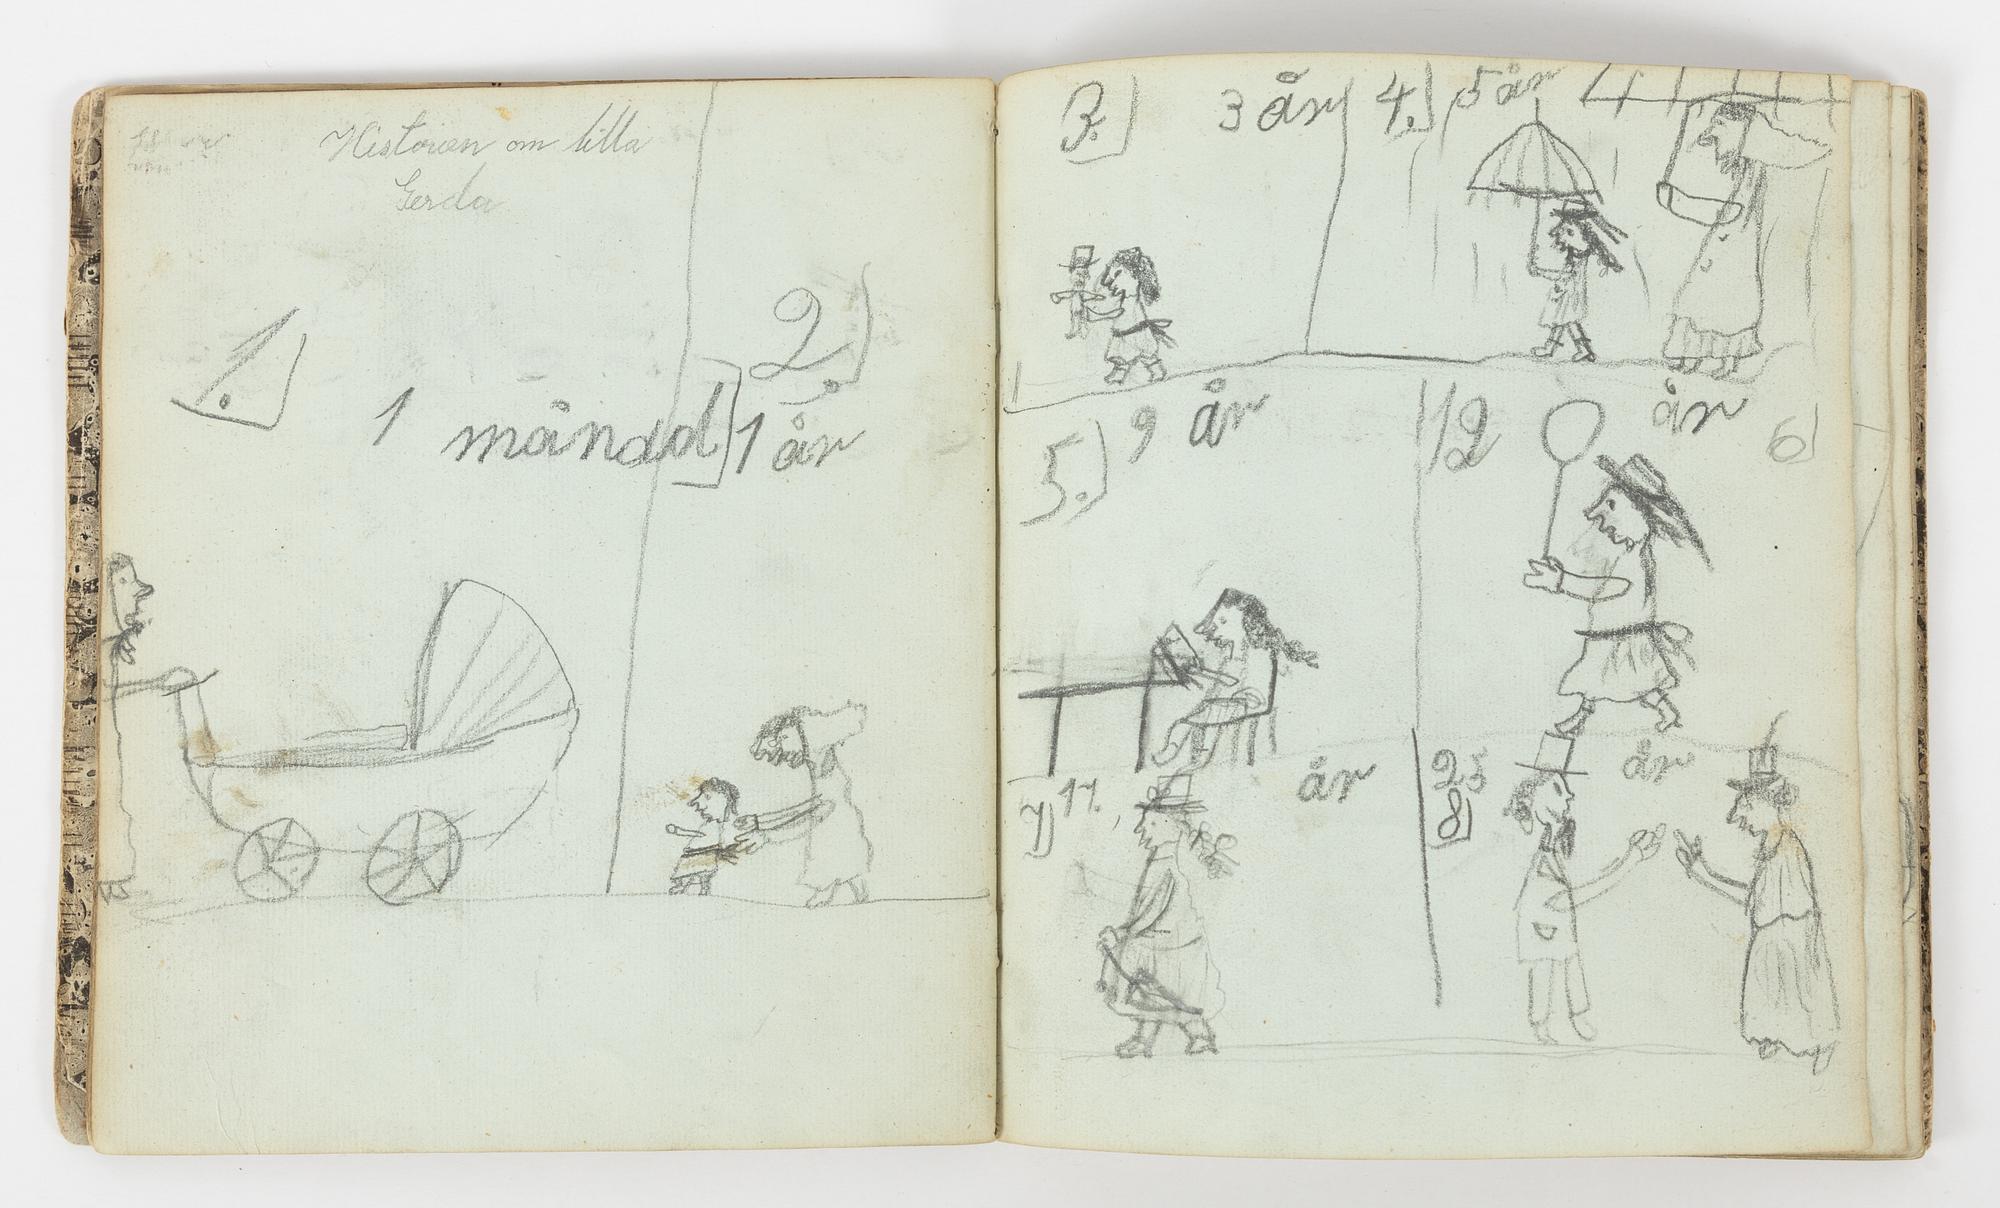 Historien om lilla
Gerda
1.
1 månad
2.
1 år
3.
3 år
4.
5 år
5.
9 år
6
12 år
7
17 år
8
25 år